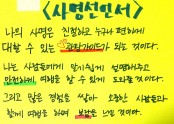 <사명선언서>
나의 사명은 친절하고 누구나 편하게
대할 수 있는 관광가이드가 되는 것이다.
나는 사람들에게 알기쉽게 설명해주고
안전하게 여행을 할 수 있게 도와줄 것이다.
그리고 많은 경험을 쌓아 오랫한 사람들과
함께 여행을 하며 보람을 느낄 것이다.